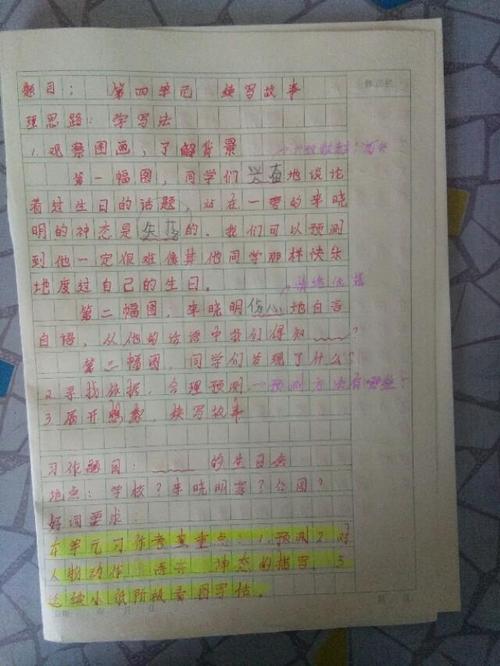 题目: 第四单元 续写故事
理思路: 学写法
1.观察图画,了解背景
第一幅图,同学们兴奋地谈论
着过生日的话题,站在一旁的李晓
明的神态是失落的。我们可以预测
到他一定很难像其他同学那样快乐
地度过自己的生日。
第二幅图,李晓明伤心地自言
自语,从他的话语中我们得知 ?
第三幅图,同学们发现了什么?
2.寻找依据,合理预测 预测方法有哪些?
3.展开想象,续写故事
习作题目: 的生日会
地点: 学校?李晓明家?公园?
好词要求:
本单元习作考查重点:1.预测2.对
人物动作、语言、神态的描写。3